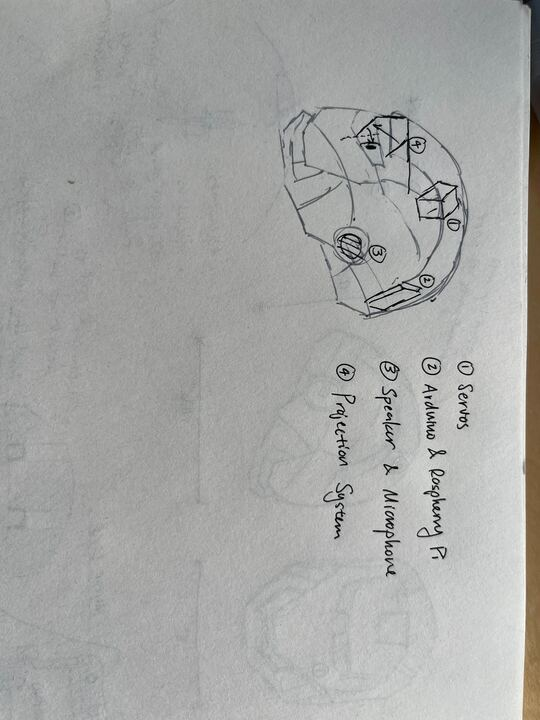 ④
①
③
②
① Servos
② Arduino & Raspherry Pi
③ Speaker & Microphone
④ Projection System